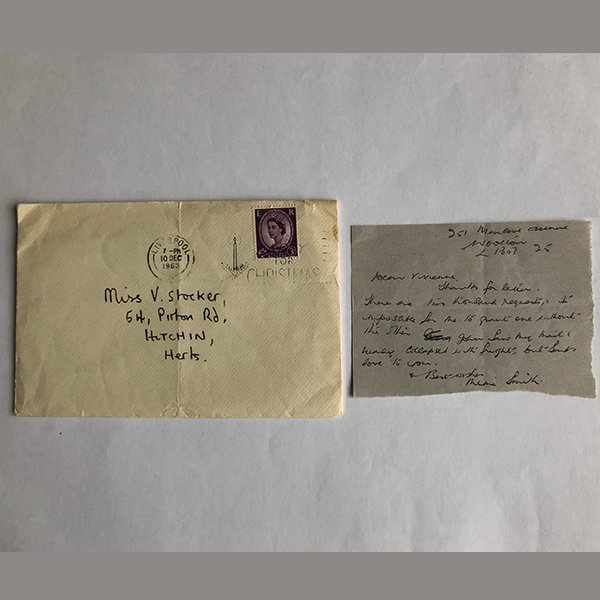 LIVERPOOL
7-PM
10 DEC
1963
E R
FOR
CHRISTMAS
Miss V. Stocker,
54, Pirton Rd,
HITCHIN,
Herts.
251 Menlove Avenue
Woolton
L'Pool 25
Dear Vivienne
Thanks for letter.
There are two hundred requests, &
impossible for me to grant one without
the other. John saw my mail &
nearly collapsed with fright, but sends
love to you.
& Best wishes
Mimi Smith.